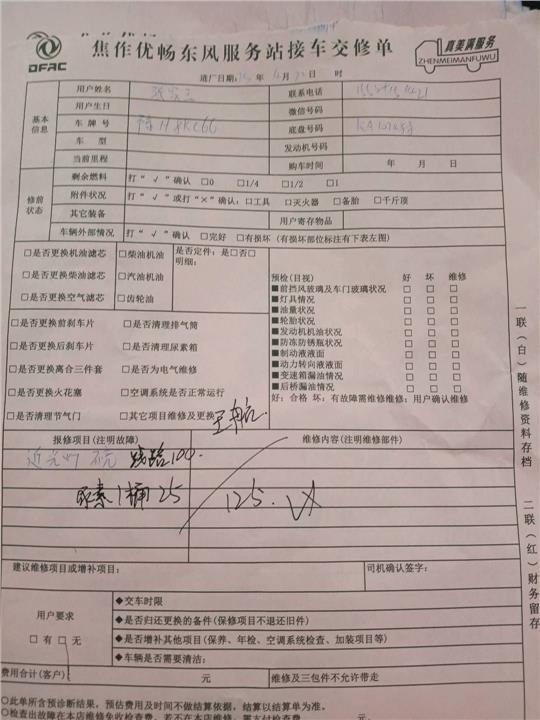 DFAC
焦作优畅东风服务站接车交修单
真美满服务
ZHENMEIMANFUWU
进厂日期: 年 月 日 时
基本信息
用户姓名 联系电话
用户生日 微信号码
车牌号 底盘号码
车型 发动机号码
当前里程 购车时间 年 月 日
修前状态
剩余燃料 打“√”确认 □0 □1/4 □1/2 □1
附件状况 打“√”或打“×”确认:□工具 □灭火器 □备胎 □千斤顶
其它装备 用户寄存物品
车辆外部情况 打“√”确认 □完好 □有损坏(有损坏部位标注有下表左图)
□是否更换机油滤芯 □柴油机油 是否定件:是□否□
明细:
□是否更换柴油滤芯 □汽油机油
□是否更换空气滤芯 □齿轮油
□是否更换前刹车片 □是否清理排气筒
□是否更换后刹车片 □是否清理尿素箱
□是否更换离合三件套 □是否为电气维修
□是否更换火花塞 □空调系统是否正常运行
□是否清理节气门 □其它项目维修及更换
预检(目视) 好 坏 维修
■前挡风玻璃及车门玻璃状况 □ □ □
■灯具情况 □ □ □
■油量状况 □ □ □
■轮胎状况 □ □ □
■发动机机油状况 □ □ □
■防冻防锈瓶状况 □ □ □
■制动液液面 □ □ □
■动力转向液液面 □ □ □
■变速箱漏油情况 □ □ □
■后桥漏油情况 □ □ □
好:合格 坏:有故障需维修维修:用户确认维修
报修项目(注明故障) 维修内容(注明维修部件)
线路100.
尿素1桶25 125.
建议维修项目或增补项目: 司机确认签字:
用户要求
□有 □无
◆交车时限
◆是否归还更换的备件(保修项目不退还旧件)
◆是否增补其他项目(保养、年检、空调系统检查、加装项目等)
◆车辆是否需要清洁:
费用合计(客户) 元 维修及三包件不允许带走
○此单所含预诊断结果,预估费用及时间不做结算依据,结算以结算单为准。
一联(白)随维修资料存档
二联(红)财务留存